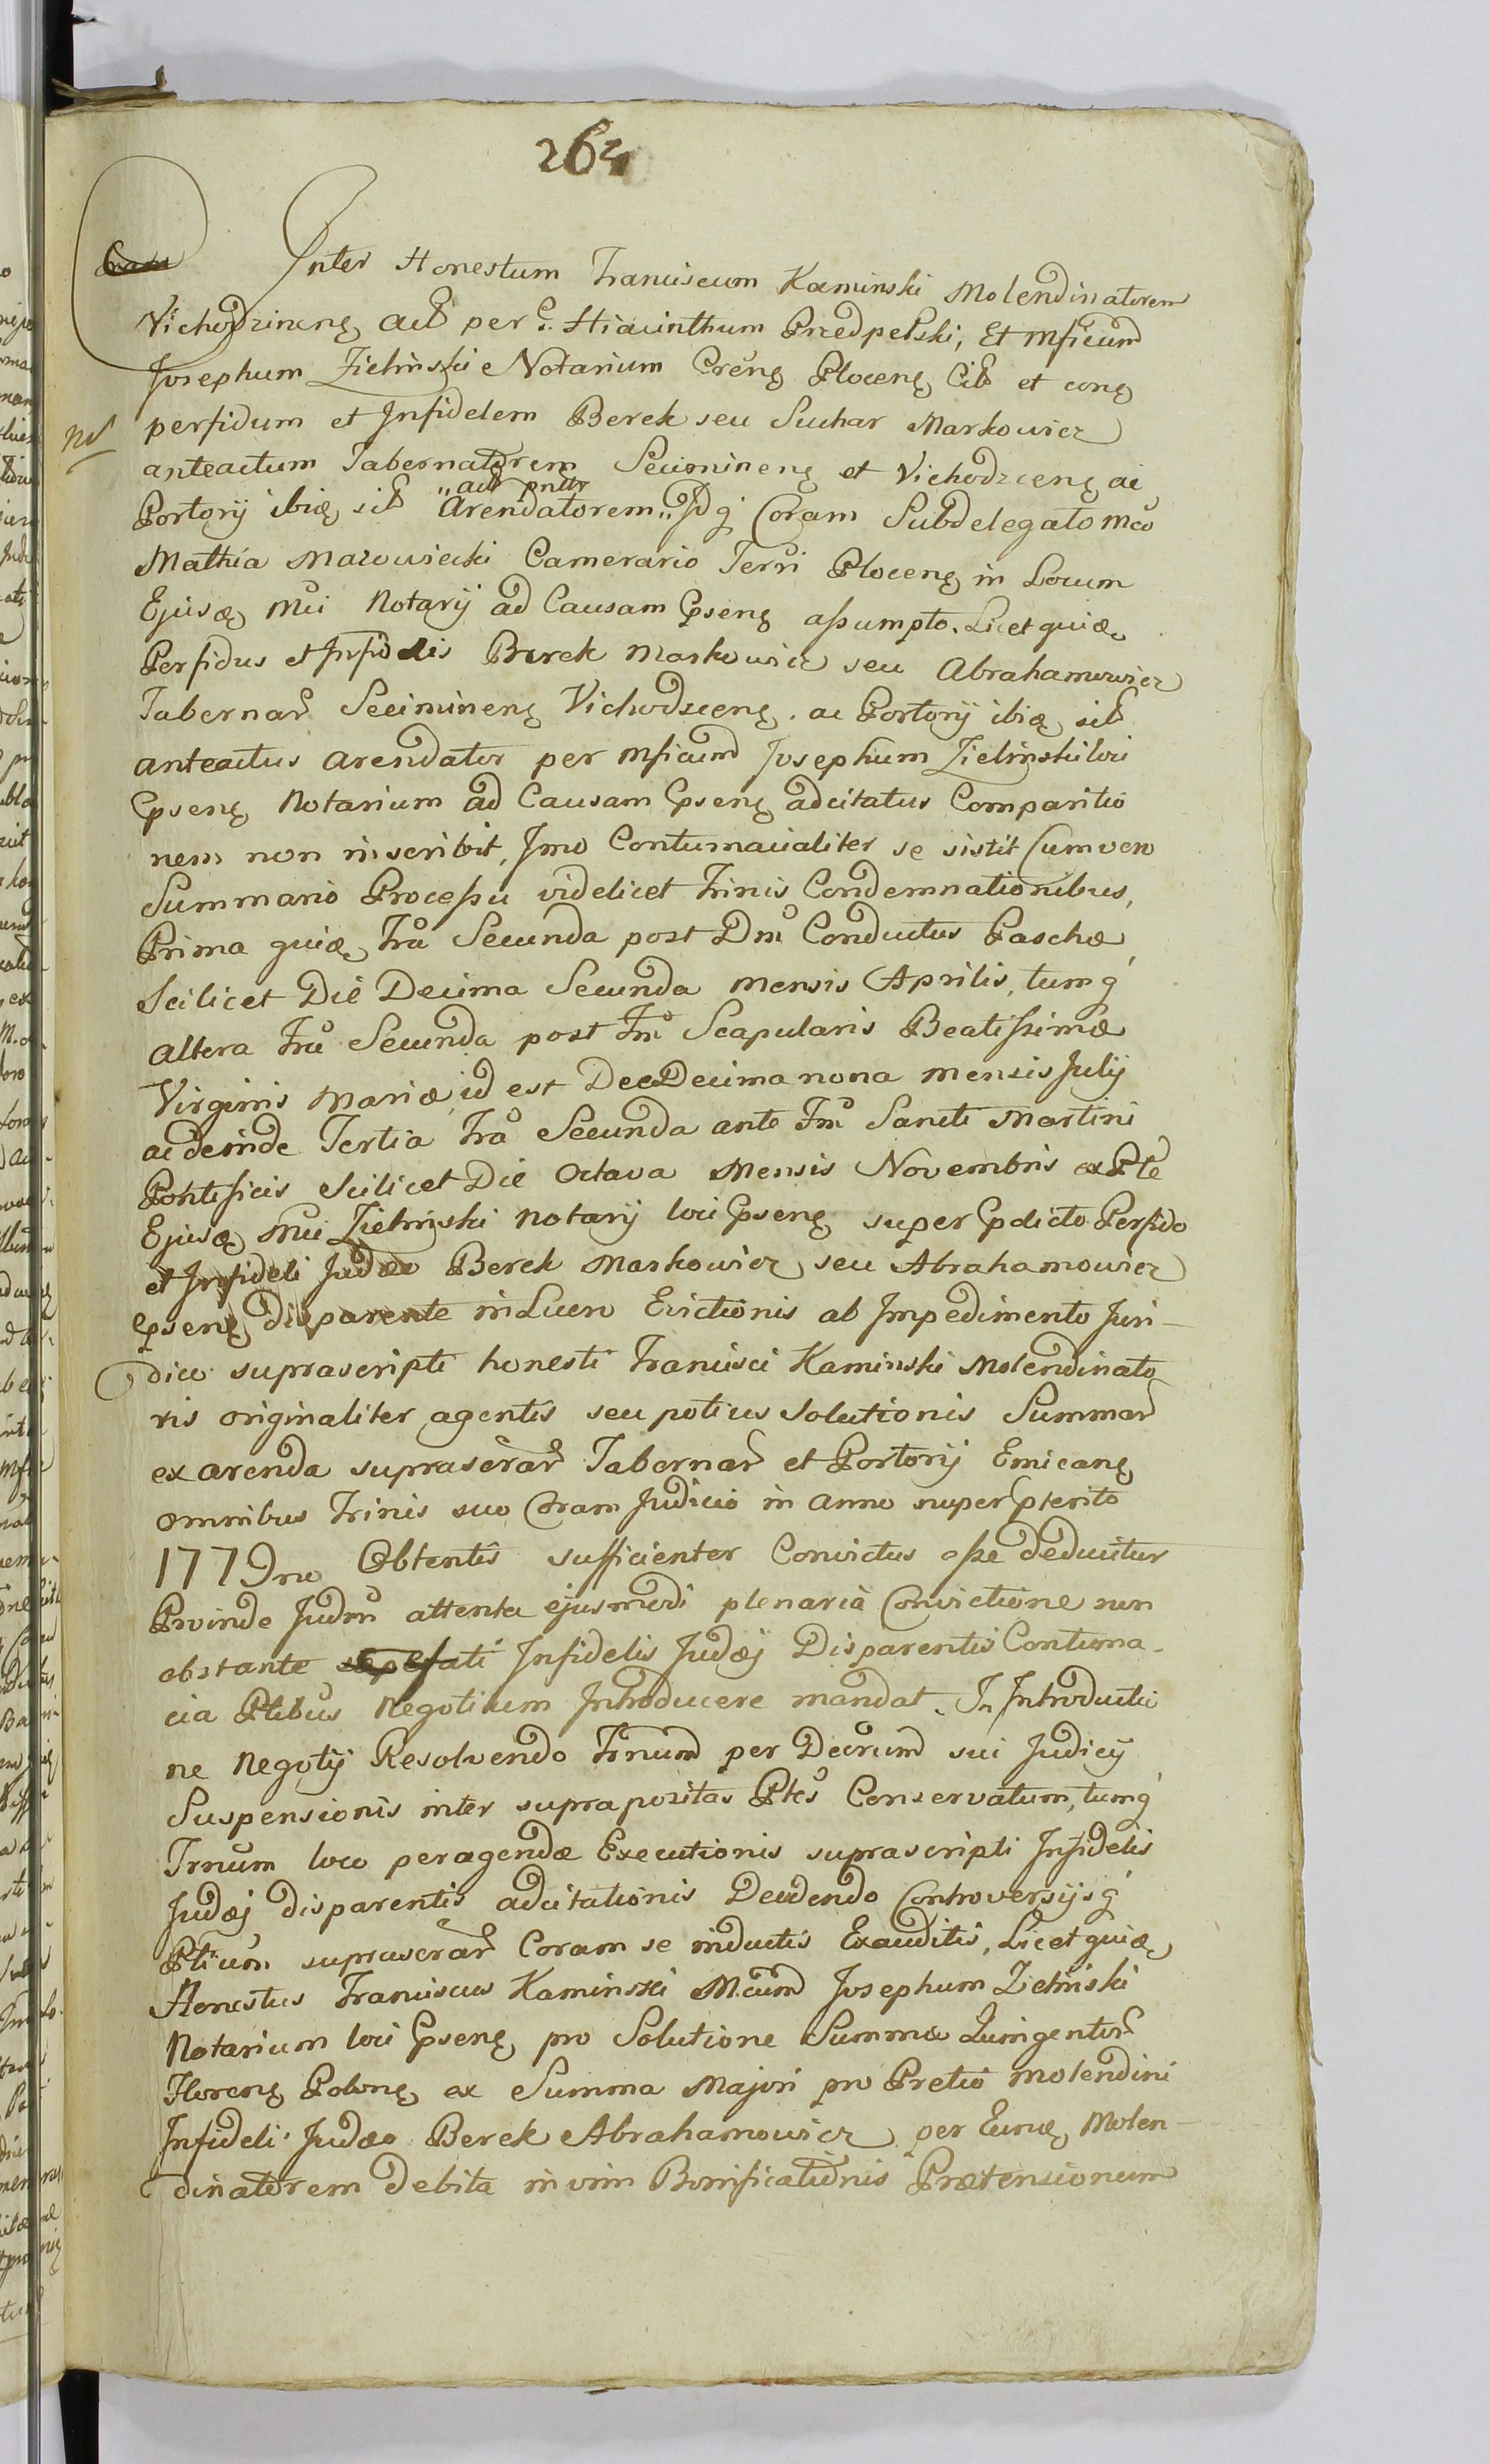 264
Inter Honestum Franciscum Kaminski Molendinatorem
Vichodzineng act per G. Hiacinthum Przedpelski, Et Mficum
Josephum Zielinski Notarium Creng Ploceng Cit et cong
nd perfidum et Infidelem Berek seu Suchar Markowicz
anteactum Tabernatorem Secimineng et Vichodzceng ac
„act pnttr
Portorij ibiq sit Arendatorem„ Idq Coram Subdelegato Mco
Mathia Mazowiecki Camerario Terri Ploceng in Locum
Ejusq Mci Notarij ad Causam Pseng assumpto. Licet quiq
Perfidus et Infidelis Berek Markowicz seu Abrahamowicz
Tabernar Secimineng Vichodzceng. ac Portorij ibiq sit
anteactus arendator per Mficum Josephum Zielinski loci
Pseng Notarium ad Causam Pseng adcitatus Comparitio
nem non inscribit, Imo Contumacialiter se sistit Cum vero
Summario Processu videlicet Trinis Condemnationibus,
Prima quiq Fra Secunda post Dm Conductus Paschæ
Scilicet Die Decima Secunda Mensis Aprilis, tumq
altera Fra Secunda post Fm Scapularis Beatissimæ
Virginis Mariæ id est Dee Decima nona mensis Julij
ac deinde Tertia Fra Secunda ante Fm Sancti Martini
Pontificis Scilicet Die Octava Mensis Novembris ex Pte
Ejusq Mci Zielinski Notarij loci Pseng super Pdicto Perfido
et Infideli Judæo Berek Markowicz seu Abrahamowicz
Pseng Disparente in Lucro Evictionis ab Impedimento Juri-
dico suprascripti honesti Francisci Kaminski Molendinato
ris originaliter agentis seu potius Solutionis Summar
ex arenda suprascrar Tabernar et Portorij Emicang
omnibus Trinis suo Coram Judicio in anno nuper Pterito
1779no Obtentis sufficienter Convictus esse deducitur
Proinde Judm attenta ejusmodi plenaria Convictione non
obstante Infidelis Judæj Disparentis Contuma-
cia Ptibus Negotium Introducere mandat. In Introductio
ne Negotij Resolvendo Trnum per Decrum sui Judicij
Suspensionis inter suprapositas Ptes Conservatum, tumq
Trnum loco peragendæ Executionis suprascripti Infidelis
Judæj disparentis adcitationis Decidendo Controversijsq
Ptium suprascrar Coram se inductis Exauditis, Licet quiq
Honestus Franciscus Kaminski M.cum Josephum Zielinski
Notarium loci Pseng pro Solutione Summæ Quingentor
Floreng Polong ex Summa Majori pro Pretio molendini
Infideli Judæo Berek Abrahamowicz per Eunq Molen-
dinatorem debita in vim Bonificationis Prætensionum